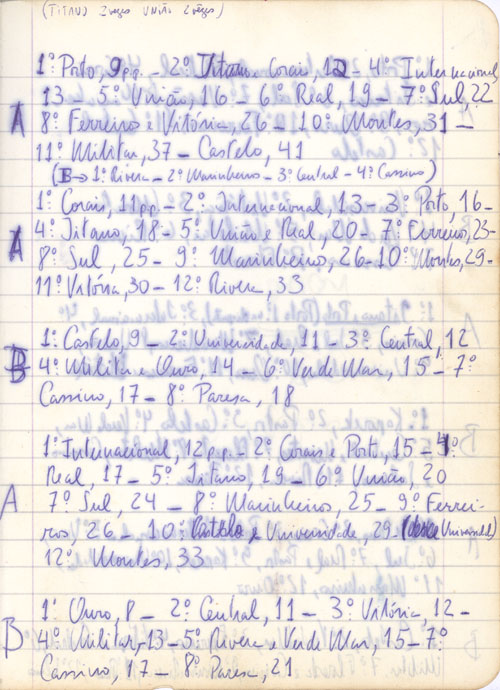 (TITANO 2 vezes UNIÃO 2 vezes)
1º Porto, 9 p.p. – 2º Titano e Corais, 12 – 4º Internacional
13 – 5º União, 16 – 6º Real, 19 – 7º Sul, 22
A 8º Ferreiro e Vitória, 26 – 10º Montes, 31 –
11º Militar, 37 – Castelo, 41
(B → 1º Rivera – 2º Marinheiros – 3º Central – 4º Cassino)
1º Corais, 11 p.p. – 2º Internacional, 13 – 3º Porto, 16 –
4º Titano, 18 – 5º União e Real, 20 – 7º Ferreiro, 23 –
A 8º Sul, 25 – 9º Marinheiro, 26 – 10º Montes, 29 –
11º Vitória, 30 – 12º Rivera, 33
1º Castelo, 9 – 2º Universidade 11 – 3º Central, 12
B 4º Militar e Ouro, 14 – 6º Verde Mar, 15 – 7º
Cassino, 17 – 8º Paresa, 18
1º Internacional, 12 p.p. – 2º Corais e Porto, 15 – 4º
Real, 17 – 5º Titano, 19 – 6º União, 20
A 7º Sul, 24 – 8º Marinheiros, 25 – 9º Ferrei-
ros, 26 – 10º Castelo e Universidade, 29 – (desce Universidade)
12º Montes, 33
1º Ouro, 8 – 2º Central, 11 – 3º Vitória, 12 –
B 4º Militar, 13 – 5º Rivera e Verde Mar, 15 – 7º
Cassino, 17 – 8º Paresa, 21